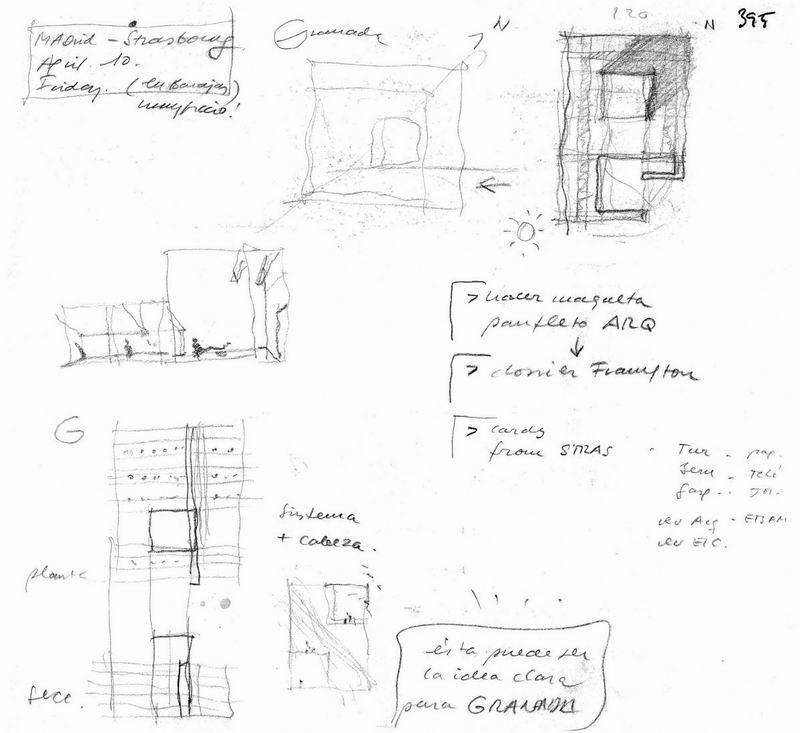 Madrid - Strasbourg
April. 10.
Friday. (en Barajas)
Granada
N
120
N
395
> hacer maqueta
panfleto ARQ
> dossier Frampton
> cards
from STRAS
Tur -
G
Sistema
+ cabeza.
planta
secc.
ésta puede ser
la idea clara
para GRANADA